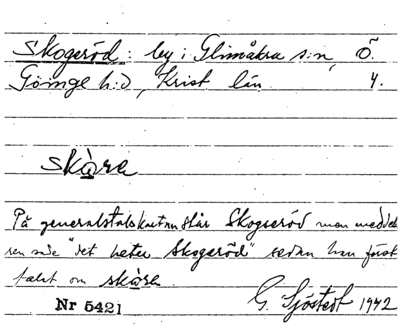 Skogeröd: by i Glimåkra s:n, Ö.
Göinge h:d, Krist. län. 4.
skàre
På generalstabskartan står Skogseröd men meddela-
ren sade "det heter Skogeröd" sedan han först
talat om skàre.
G. Sjöstedt 1942
Nr 5421